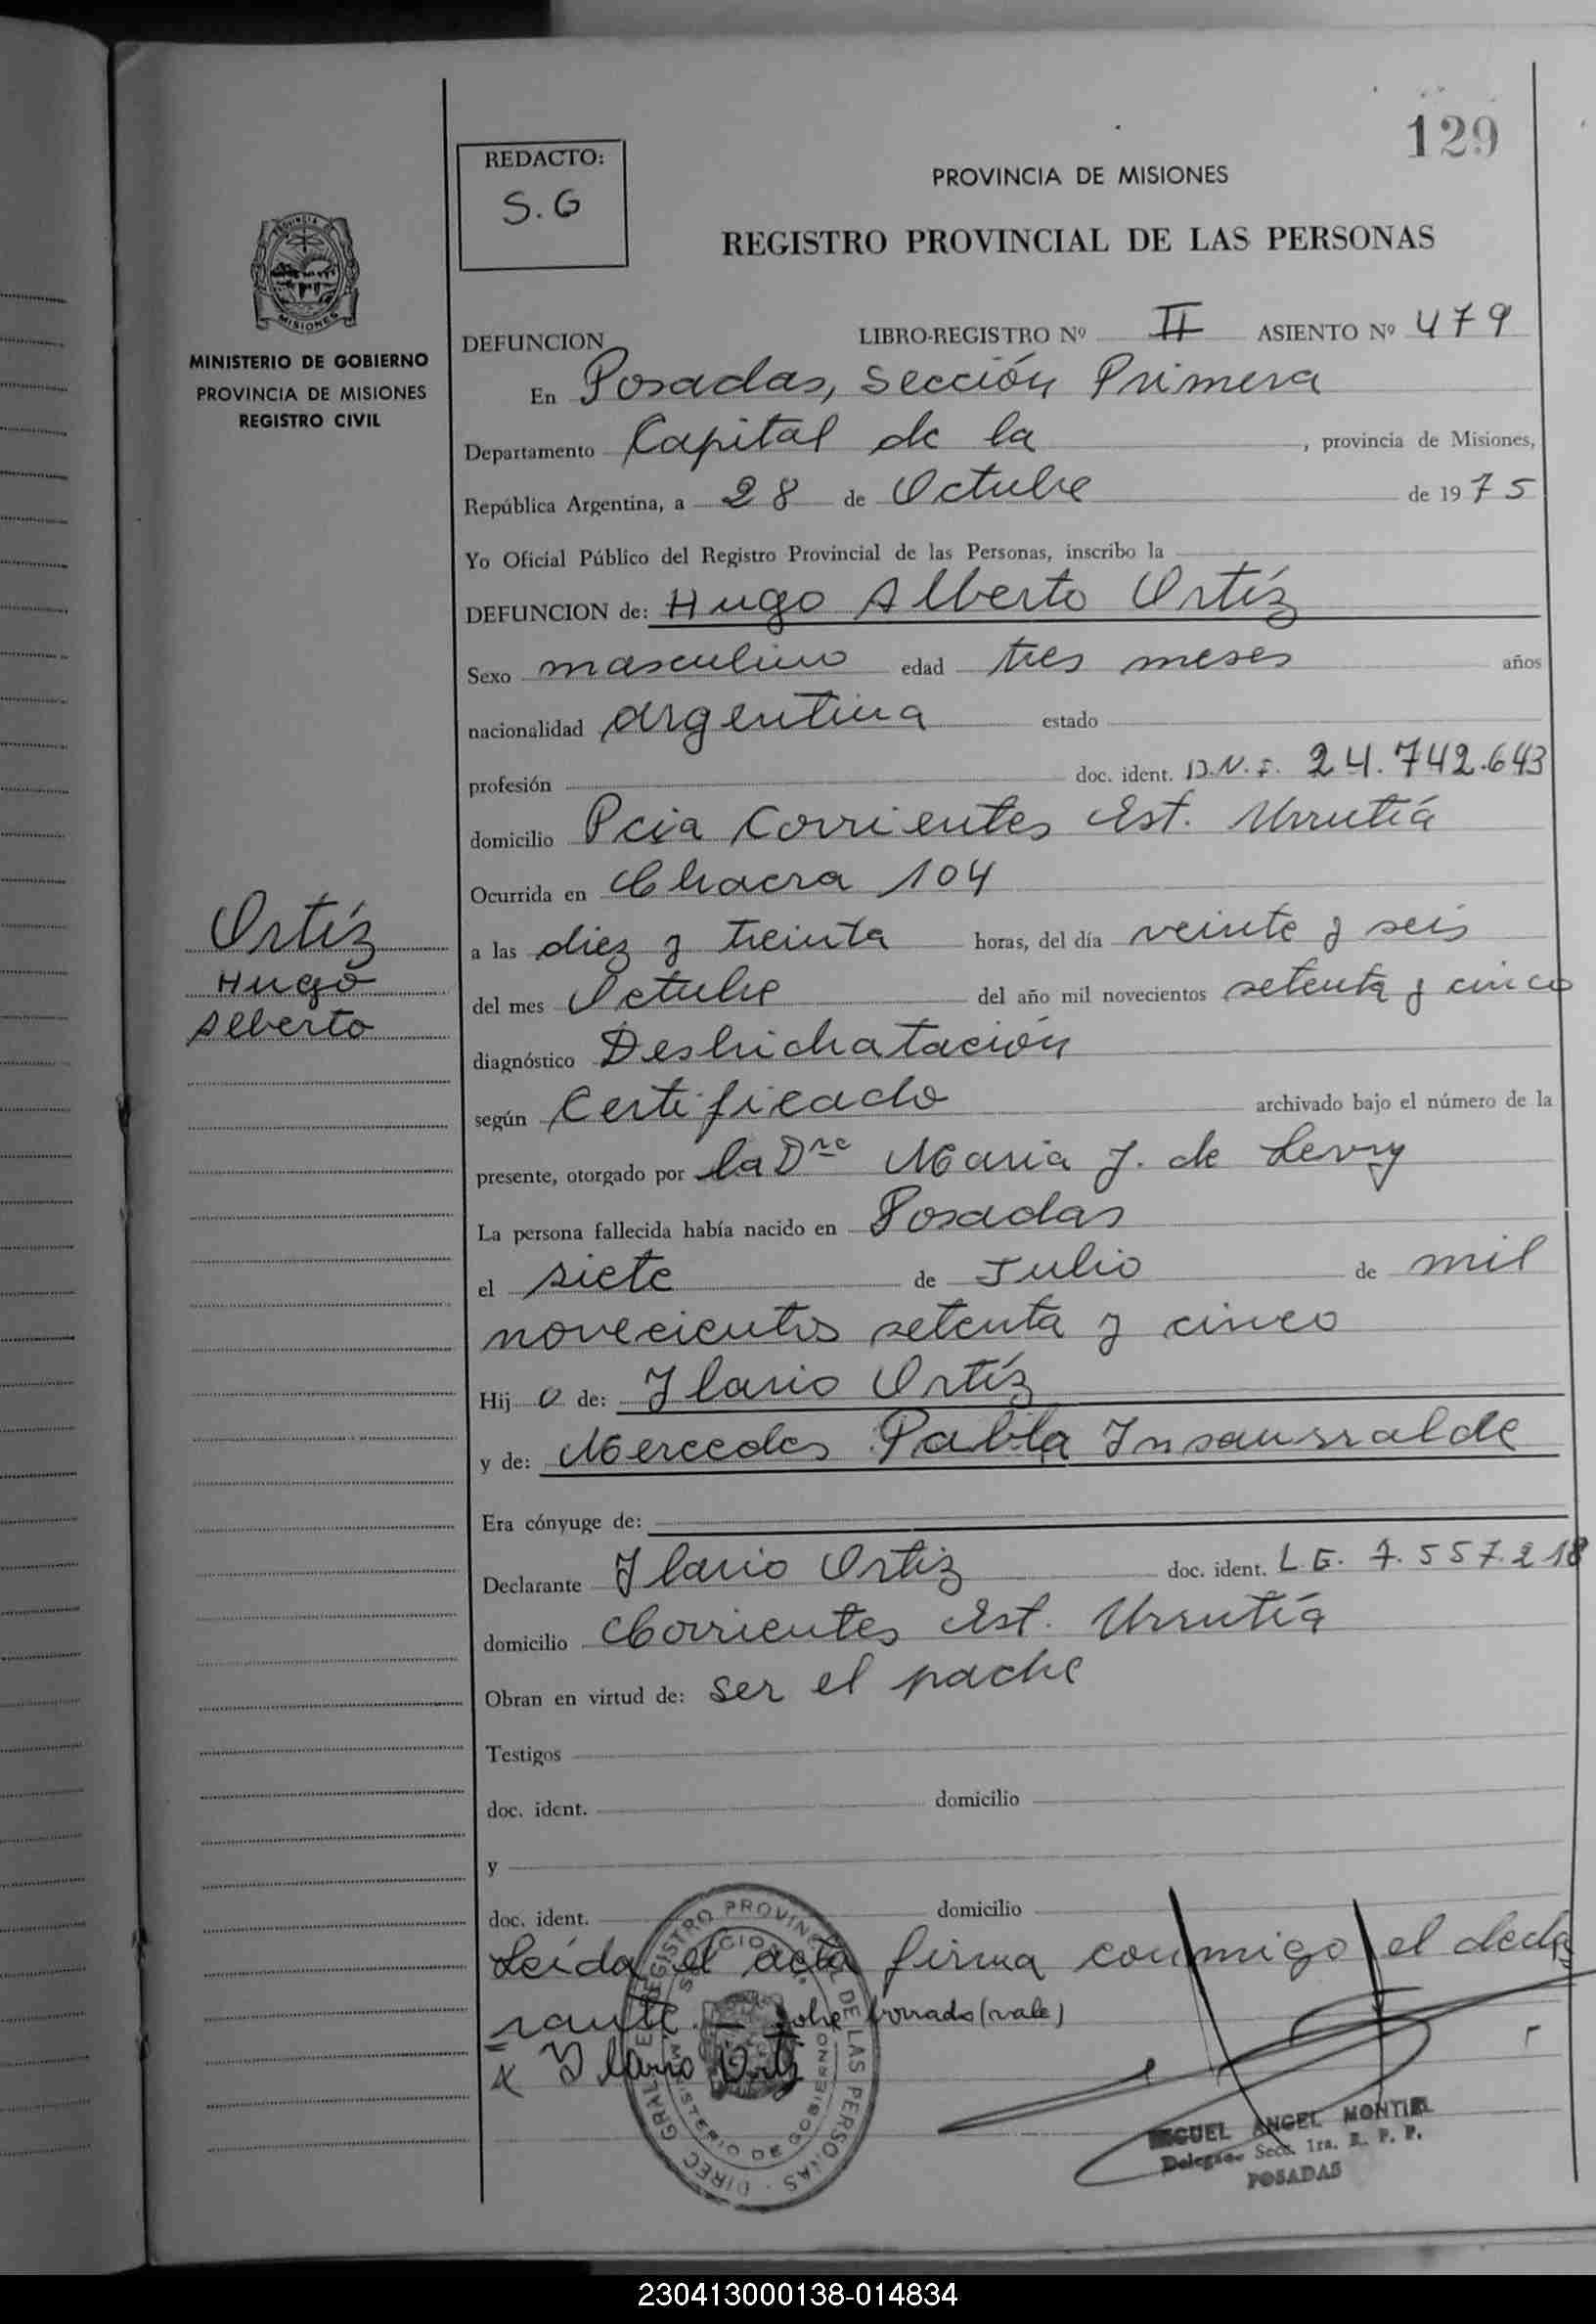 129
REDACTO:
S.G
PROVINCIA DE MISIONES
REGISTRO PROVINCIAL DE LAS PERSONAS
PROVINCIA
MISIONES
MINISTERIO DE GOBIERNO
PROVINCIA DE MISIONES
REGISTRO CIVIL
DEFUNCION LIBRO-REGISTRO Nº II ASIENTO Nº 479
En Posadas, Sección Primera
Departamento Capital de la , provincia de Misiones,
República Argentina, a 28 de Octubre de 1975
Yo Oficial Público del Registro Provincial de las Personas, inscribo la
DEFUNCION de: Hugo Alberto Ortíz
Sexo masculino edad tres meses años
nacionalidad argentina estado
profesión doc. ident. D.N.I. 24.742.643
domicilio Pcia Corrientes Est. Urrutía
Ocurrida en Chacra 104
Ortíz
Hugo
Alberto
a las diez y treinta horas, del día veinte y seis
del mes Octubre del año mil novecientos setenta y cinco
diagnóstico Deshidratación
según Certificado archivado bajo el número de la
presente, otorgado por la Dra Maria J. de Levry
La persona fallecida había nacido en Posadas
el siete de Julio de mil
novecientos setenta y cinco
Hijo de: Ilario Ortíz
y de: Mercedes Pabla Insaurralde
Era cónyuge de:
Declarante Ilario Ortiz doc. ident. L.E. 7.557.218
domicilio Corrientes Est. Urrutía
Obran en virtud de: ser el padre
Testigos
doc. ident. domicilio
y
doc. ident. domicilio
Leída el acta firma conmigo el decla
rante. — sobre borrado (vale)
x Ilario Ortiz
DIREC. GRAL. REGISTRO PROVINCIAL DE LAS PERSONAS
MINISTERIO DE GOBIERNO
MIGUEL ANGEL MONTIEL
Delegado Secc. 1ra. R. P. P.
POSADAS
230413000138-014834